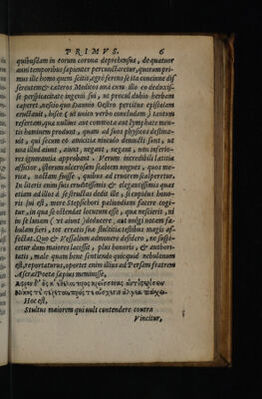 PRIMVS. 6
quibusdam in eorum corona deprehensus, de quatuor
anni temporibus sapienter percunctaretur, quorum pri-
mus ille homo quem scitis, ægrè ferens se ita concinne dis
serentem & cæteros Medicos una cum illo
se perspicacitate ingenij sui, ut procul dubio herbam
caperet, nescio quo Daunio Oestro percitus epistolam
eructauit, hisce ( ut unico verbo concludam ) tantum
refertam, quæ nullus ante commota aut lymphatæ men-
tis hominem produnt, quam ad suos physicos destina-
uit, qui secum ex amicitiæ uinculo deuincti sunt, ut
una illud aiunt, aiunt, negant, negant, non inferio-
res ignorantia approbant. Verum incredibili lætitia
afficior, istorum ulcerosam scabiem ungues, non me-
rica, noctua fuisse, quibus ad cruorem scalperetur.
In literis enim suis eruditissimis & elegantissimis quæ
etiam ad illos à se structas dedit ille, si copulas hono-
ris sui est, uere Stepsichori palinodiam facere cogi-
tur, in qua se ostendat locutum esse, quæ nescierit, ni
si se lusum ( ut aiunt ) docuere, aut uulgi notam fa-
bulam fieri, tot erratis suæ stultitiæ testibus magis af-
fectat. Quo & Vessalium admonere desidero, ne susti-
cetur dum maiores lacessit, plus honoris, & authori-
tatis, male quam bene sentiendo quicquid nebulonum
est, reportaturus, oportet enim illius ad Persam fratrem
Ascræi Poetæ sæpius meminisse,
Ἄφρων δ' ὅς κ' ἐθέλοι πρὸς κρείσσονας ἀντιφερίζειν
Νίκης τε στέρεται πρός τ' αἴσχεσιν ἄλγεα πάσχει.
Hoc est,
Stultus maiorem qui uult contendere contra
Vincitur,